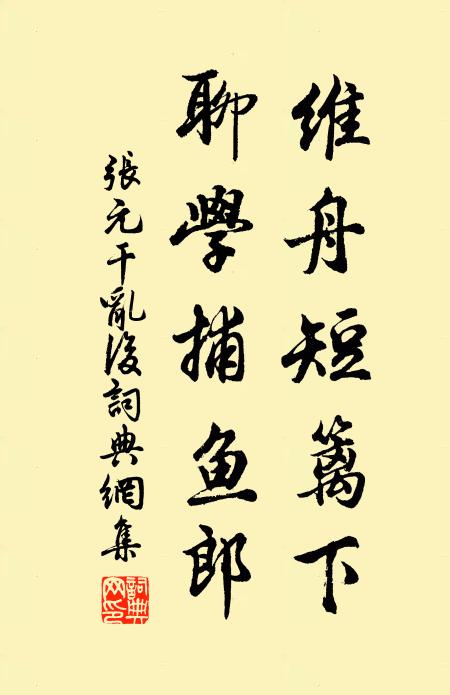 维舟短篱下
聊學捕鱼郎
張元干亂後詞典網集
詞典網印